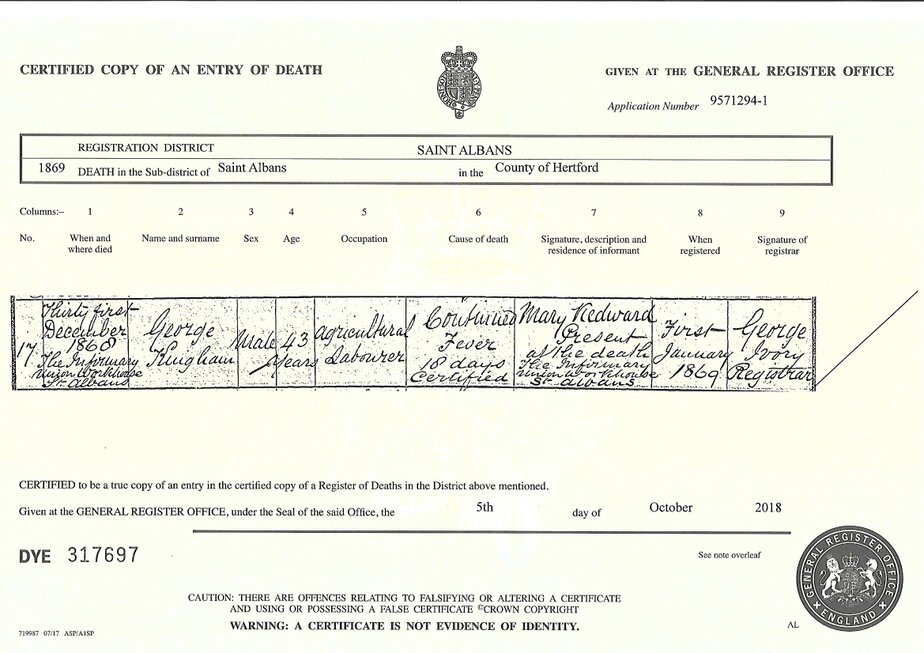 CERTIFIED COPY OF AN ENTRY OF DEATH
GIVEN AT THE GENERAL REGISTER OFFICE
Application Number 9571294-1
REGISTRATION DISTRICT SAINT ALBANS
1869 DEATH in the Sub-district of Saint Albans in the County of Hertford
Columns:– 1 2 3 4 5 6 7 8 9
No. When and where died Name and surname Sex Age Occupation Cause of death Signature, description and residence of informant When registered Signature of registrar
17
Thirty first
December
1868
The Infirmary
Union Workhouse
St. Albans
George
Kingham
Male
43
years
Agricultural
Labourer
Continued
Fever
18 days
Certified
Mary
Present
at the death
The Infirmary
Union Workhouse
St. Albans
First
January
1869
George
Ivory
Registrar
CERTIFIED to be a true copy of an entry in the certified copy of a Register of Deaths in the District above mentioned.
Given at the GENERAL REGISTER OFFICE, under the Seal of the said Office, the 5th day of October 2018
DYE 317697
See note overleaf
GENERAL REGISTER OFFICE
ENGLAND
CAUTION: THERE ARE OFFENCES RELATING TO FALSIFYING OR ALTERING A CERTIFICATE
AND USING OR POSSESSING A FALSE CERTIFICATE ©CROWN COPYRIGHT
WARNING: A CERTIFICATE IS NOT EVIDENCE OF IDENTITY.
AL
719987 07/17 ASP/A1SP